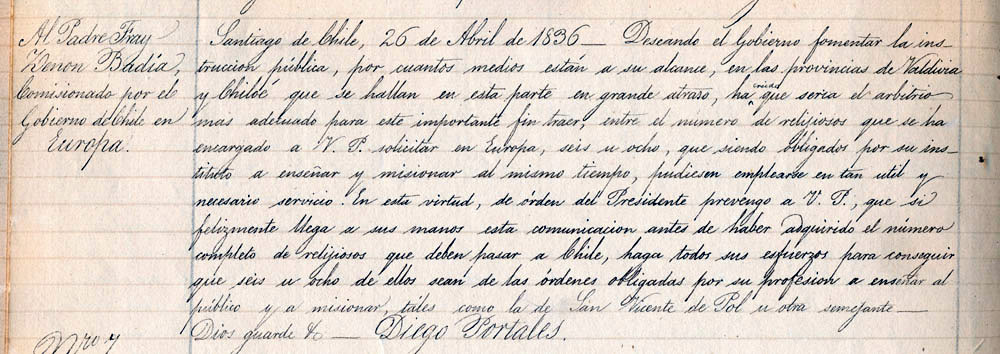 Al Padre Fray
Zenon Badía,
Comisionado por el
Gobierno de Chile en
Europa.
Santiago de Chile, 26 de Abril de 1836— Deseando el Gobierno fomentar la ins-
truccion pública, por cuantos medios están a su alcance, en las provincias de Valdivia
y Chiloé que se hallan en esta parte en grande atraso, ha creido que seria el arbitrio
mas adecuado para este importante fin traer, entre el número de relijiosos que se ha
encargado a V. P. solicitar en Europa, seis u ocho, que siendo obligados por su ins-
tituto a enseñar y misionar al mismo tiempo, pudiesen emplearse en tan util y
necesario servicio. En esta virtud, de órden del Presidente prevengo a V. P., que si
felizmente llega a sus manos esta comunicacion antes de haber adquirido el número
completo de relijiosos que deben pasar a Chile, haga todos sus esfuerzos para conseguir
que seis u ocho de ellos sean de las órdenes obligadas por su profesion a enseñar al
público y a misionar, tales como la de San Vicente de Pol u otra semejante—
Dios guarde &— Diego Portales.
Nro 7